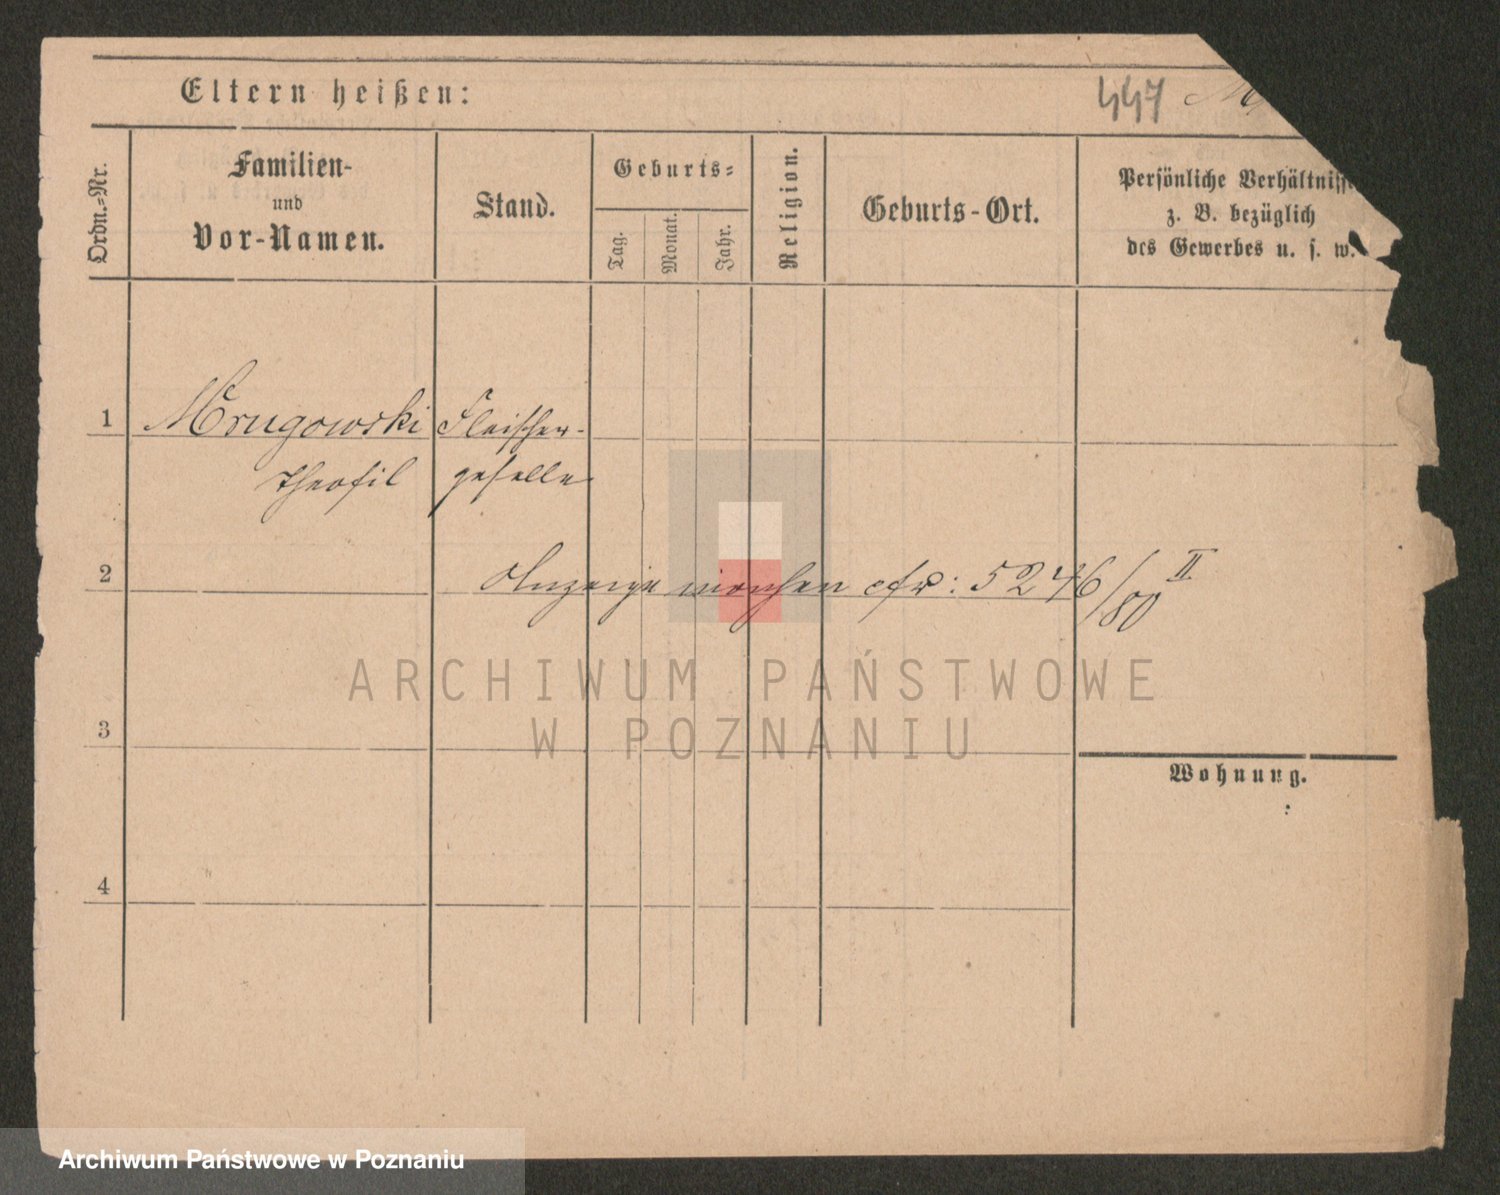 Eltern heißen:
447 M
Ordn.-Nr.
Familien-
und
Vor-Namen.
Stand.
Geburts-
Tag.
Monat.
Jahr.
Religion.
Geburts-Ort.
Persönliche Verhältniss
z. B. bezüglich
des Gewerbes u. s. w.
1 Mrugowski Fleischer-
Theofil geselle
2 Anzeige cfr: 5246/80 II
ARCHIWUM PAŃSTWOWE
W POZNANIU
3
Wohnung.
4
Archiwum Państwowe w Poznaniu